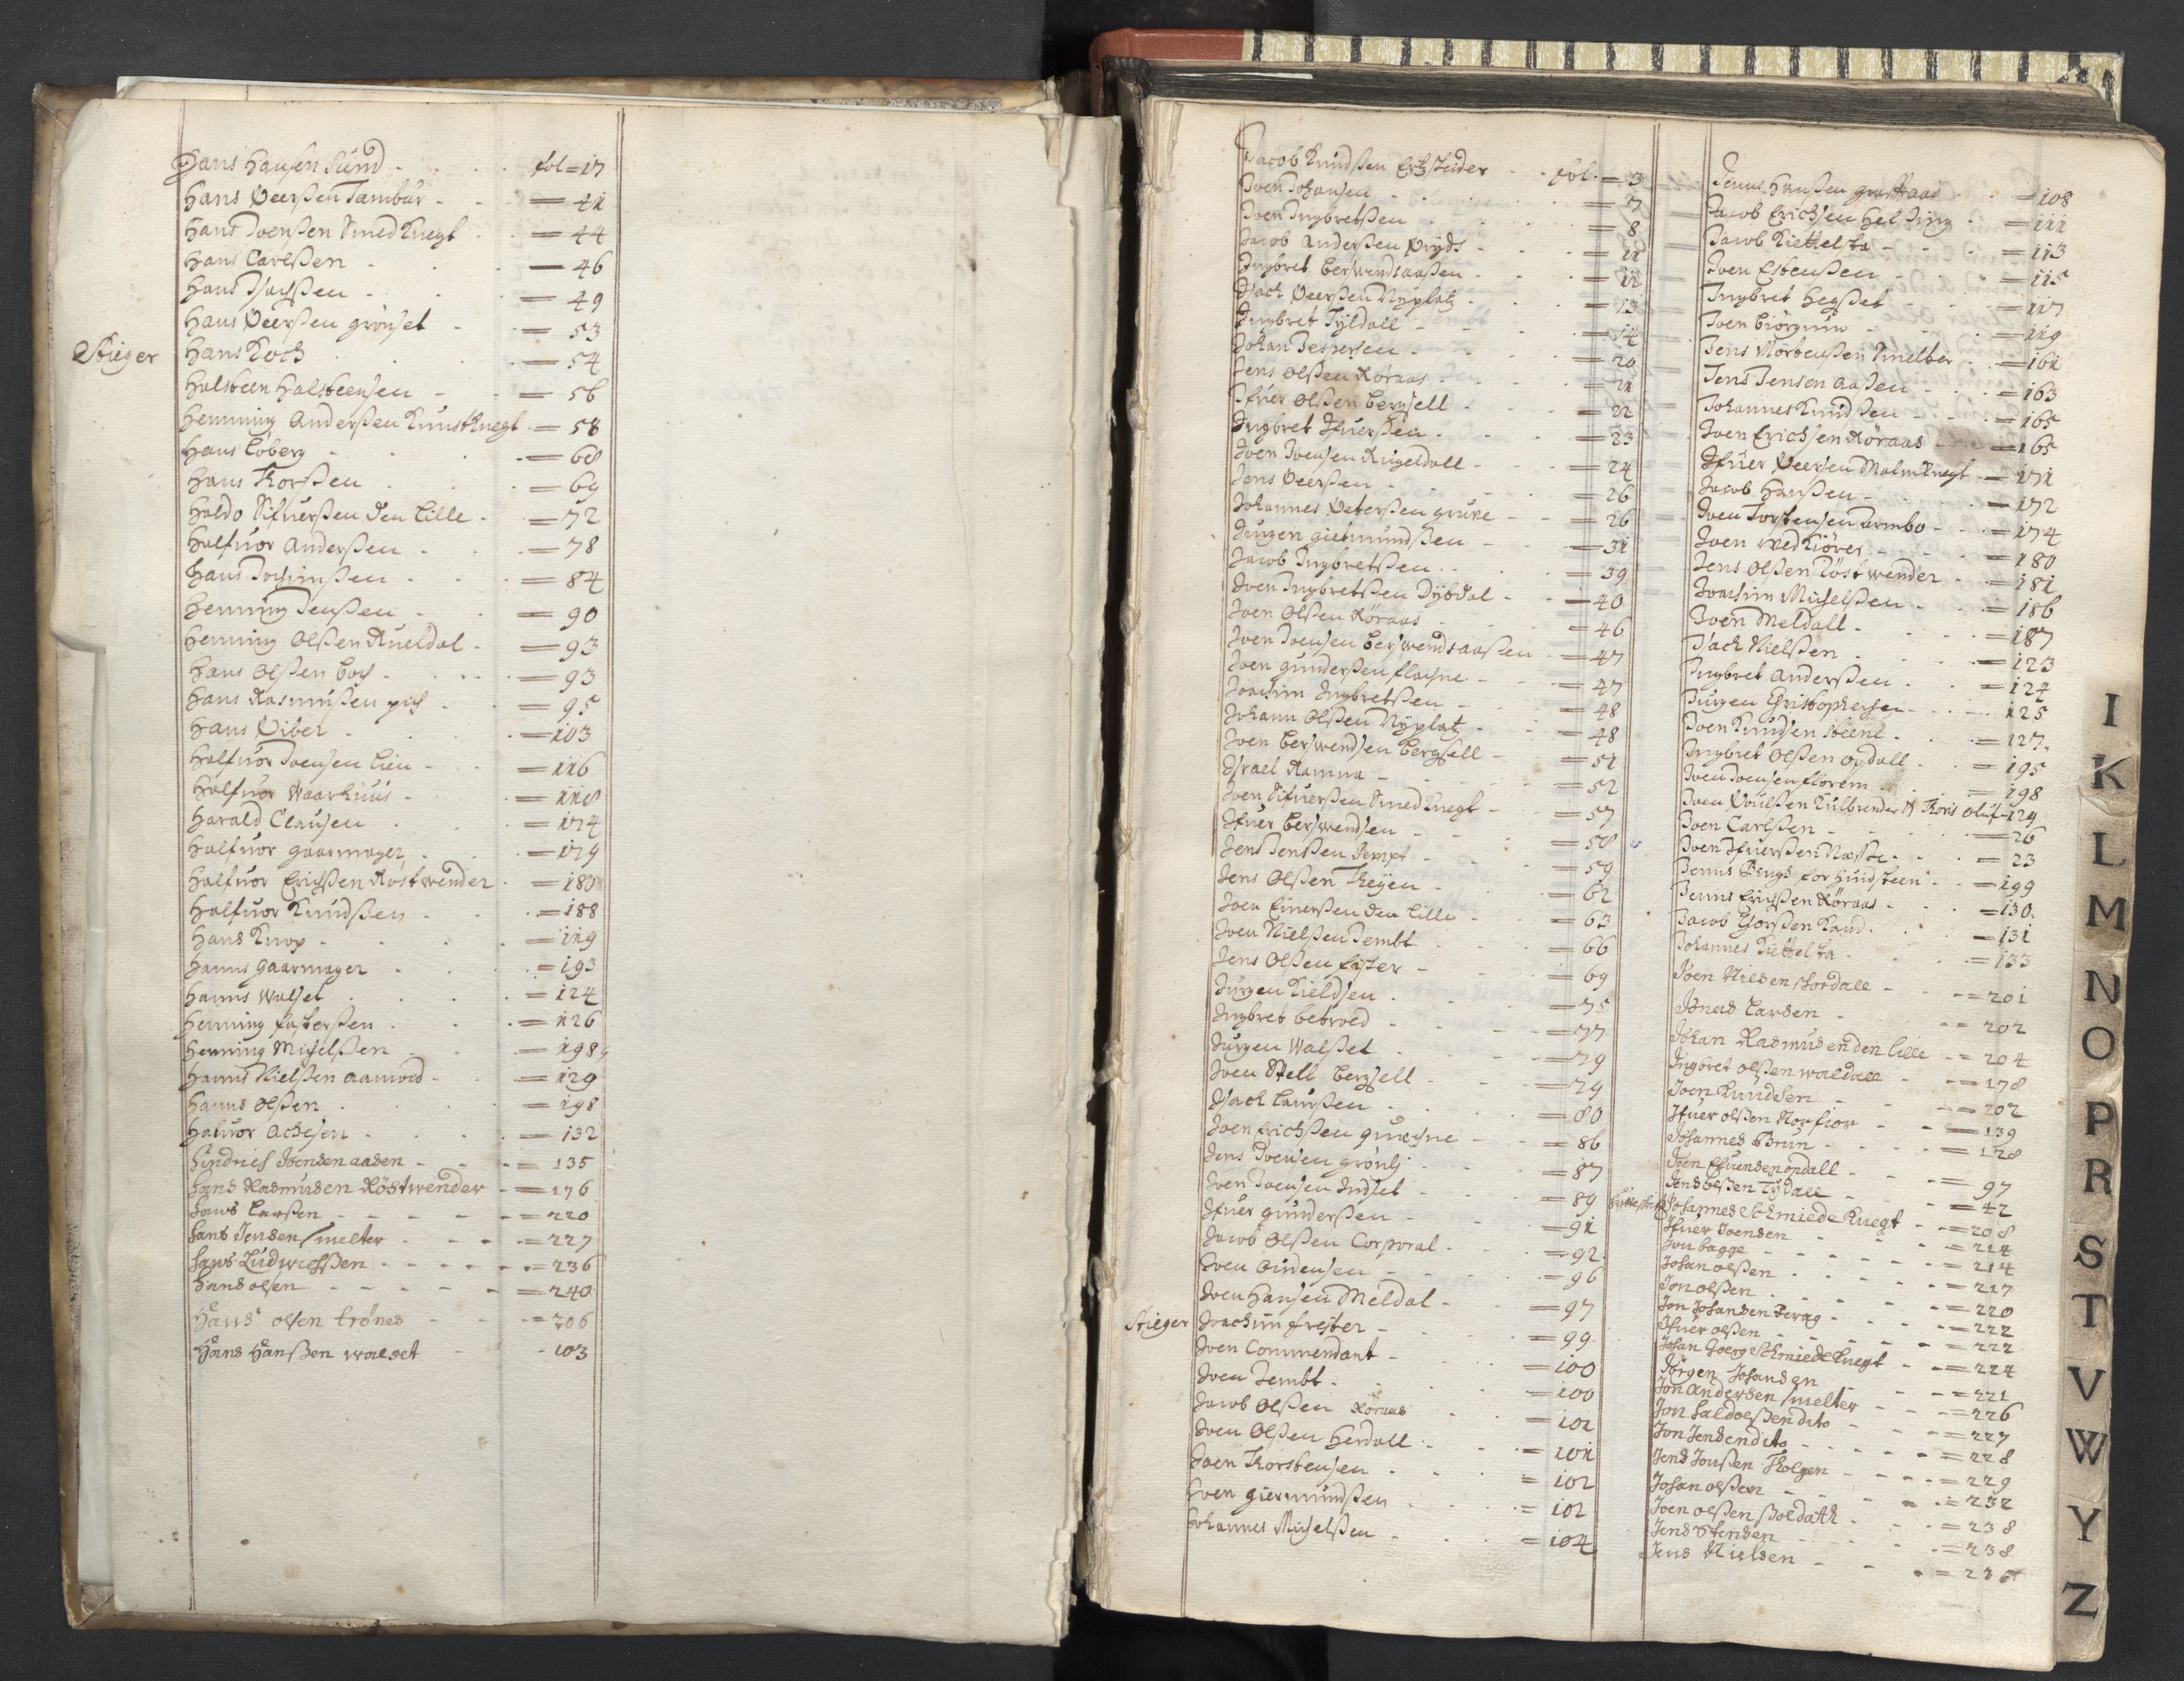 Hans Hansen Sund - fol = 17
Hans Peerßen Tambur - = 41
Hans Joenßen Smed Knegt = 44
Hans Carlßen - = 46
Hans Isachßen - = 49
Hans Peerßen grönset - = 53
Stieger Hans Koch = 54
Halsteen Halsteensen - = 56
Hemming Anderßen Kunst Knegt - = 58
Hans Coberg - = 68
Hans Thorßen = 69
Haldo Sifuerßen den Lille - = 72
Halfuor Anderßen - = 78
Hans Jochimßen - = 84
Henning Jenßen - = 90
Henning Olßen Rueldal - = 93
Hans Olßen Boch - = 93
Hans Rasmußen = 95
Hans Viber - = 103
Halfuor Joensen Lien - = 116
Halfuor Waarhuus - = 118
Harald Clausen = 174
Halfuor gaarmager = 179
Halfuor Erichßen Röstwender = 183
Halfuor Knudßen - = 188
Hans Knop - = 119
Hanns gaarmager = 193
Hanns Walset = 124
Henning = 126
Henning Michelßen = 198
Hanns Nielßen Aamoed - = 129
Hanns Olßen = 198
Haluor Achesen = 132
Hindrich Joensen aasen - = 135
Hans Rasmusen Röstwender - = 176
Hans Larßen - = 220
Hans Jensen smelter - = 227
Hans Ludwichßen - = 236
Hans olsen - = 240
Hans olsen trönes - = 206
Hans Hanßen Walset - 103
Jacob Knudßen Ertz scheider - fol. = 3
Joen Johansen = 7
Joen Ingbretßen = 8
Jacob Anderßen - = 11
Ingbret Berswendsaasen - = 12
Isach Peerßen Nyplatz - = 13
Ingbret Tyldall - = 14
Johan Jespersen - = 20
Jens Olßen Röraas - = 21
Ifuer Olßen Bergsell = 22
Ingbret Ifuerßen - = 23
Joen Joensen Rugeldall - = 24
Jens Peerßen - = 26
Johannes Peterßen grüne - = 26
Jurgen giermundßen - = 31
Jacob Ingbretßen - = 39
Joen Ingbretßen Dybdal - = 40
Joen Olßen Röraas = 46
Joen Joensen Berswendsaaßen = 47
Joen gunderßen - = 47
Joachim Ingbretßen - = 48
Johann Olßen Nyplatz - = 48
Joen Berswendsen Bergsell - = 51
Israel Ramma - = 52
Joen Sifuerßen Smed Knegt - = 57
Ifuer Berswendsen = 58
Jens Jenßen Jempt - = 59
Jens Olßen Theyen - = 62
Joen Einerßen den Lille - = 63
Joen Nielßen Jembt = 66
Jens Olßen - = 69
Jurgen Kieldsen - = 75
Ingbret = 77
Jurgen Walset = 79
Joen Bergsell - = 79
Isach Laurßen - = 80
Joen Erichßen - = 86
Jens Joensen grönli - = 87
Joen Joensen Indset - = 89
Ifuer gunderßen - = 91
Jacob Olßen Corporal - = 92
Joen = 96
Joen Hansen Meldal - = 97
Stieger Joachim - = 99
Joen Commendant - = 100
Joen Jembt - = 100
Jacob Olßen Röraas = 101
Joen Olßen Herdall - = 101
Joen Thorstensen - = 102
Joen giermundßen = 102
Johannes Michelßen - = 104
Jenns Hanßen = 108
Jacob Erichsen Helsing = 111
Jacob Kiettelsa - = 113
Joen Esbenßen = 115
Ingbret Hegset = 117
Joen = 119
Jens Mortenßen Smelter - = 161
Jens Jensen aasen - = 163
Johannes Knudßen = 165
Joen Erichsen Röraas = 165
Ifuer Peersen Malm Knegt - = 171
Jacob Hanßen - = 172
Joen Torstensen - = 174
Joen ved Kiöres - = 180
Jens Olßen Röstwender - = 181
Joachim Michelßen - = 186
Joen Meldall - = 187
Isach Nielßen - = 123
Ingbret Anderßen = 124
Jurgen Christophersen - 125
Joen Knudsen Steene - = 127
Ingbret Olßen opdall - = 195
Joen Joensen = 198
Joen Poulßen Kulbrender - 129
Joen Carlßen - = 26
Joen Ifuerßen Naßte - = 23
Jenns for Hundsteen - = 199
Jenns Erichßen Röraas - = 130
Jacob = 131
Johannes Kiettelsa - = 133
Joen Nilsen stordall - = 201
Jonas Larsen - = 202
Johan Rasmusen den lille - = 204
Ingbret olßen waldall - = 178
Joen Knudsen = 202
Ifuer olßen = 139
Johannes Brun - = 128
Joen opdall - = 97
Jens olßen Tydall = 42
Johannes Schmiede Knegt - = 208
Ifuer Joensen = 214
Jon bagge - = 214
Johan olßen = 217
Jon olßen = 220
Jon Johansen = 222
Ifuer olßen - = 222
Johan Georg Schmiede Knegt = 224
Jörgen Johansen = 221
Jon Andersen smelter = 226
Jon Haldoßen dito = 227
Jon Jensen dito - = 228
Jens Jonßen Tholgen = 229
Johan olßen - = 232
Joen olßen ßoldath - = 238
Jens Stensen = 238
Jens Nielsen
I
K
L
M
N
O
P
R
S
T
V
W
Y
Z